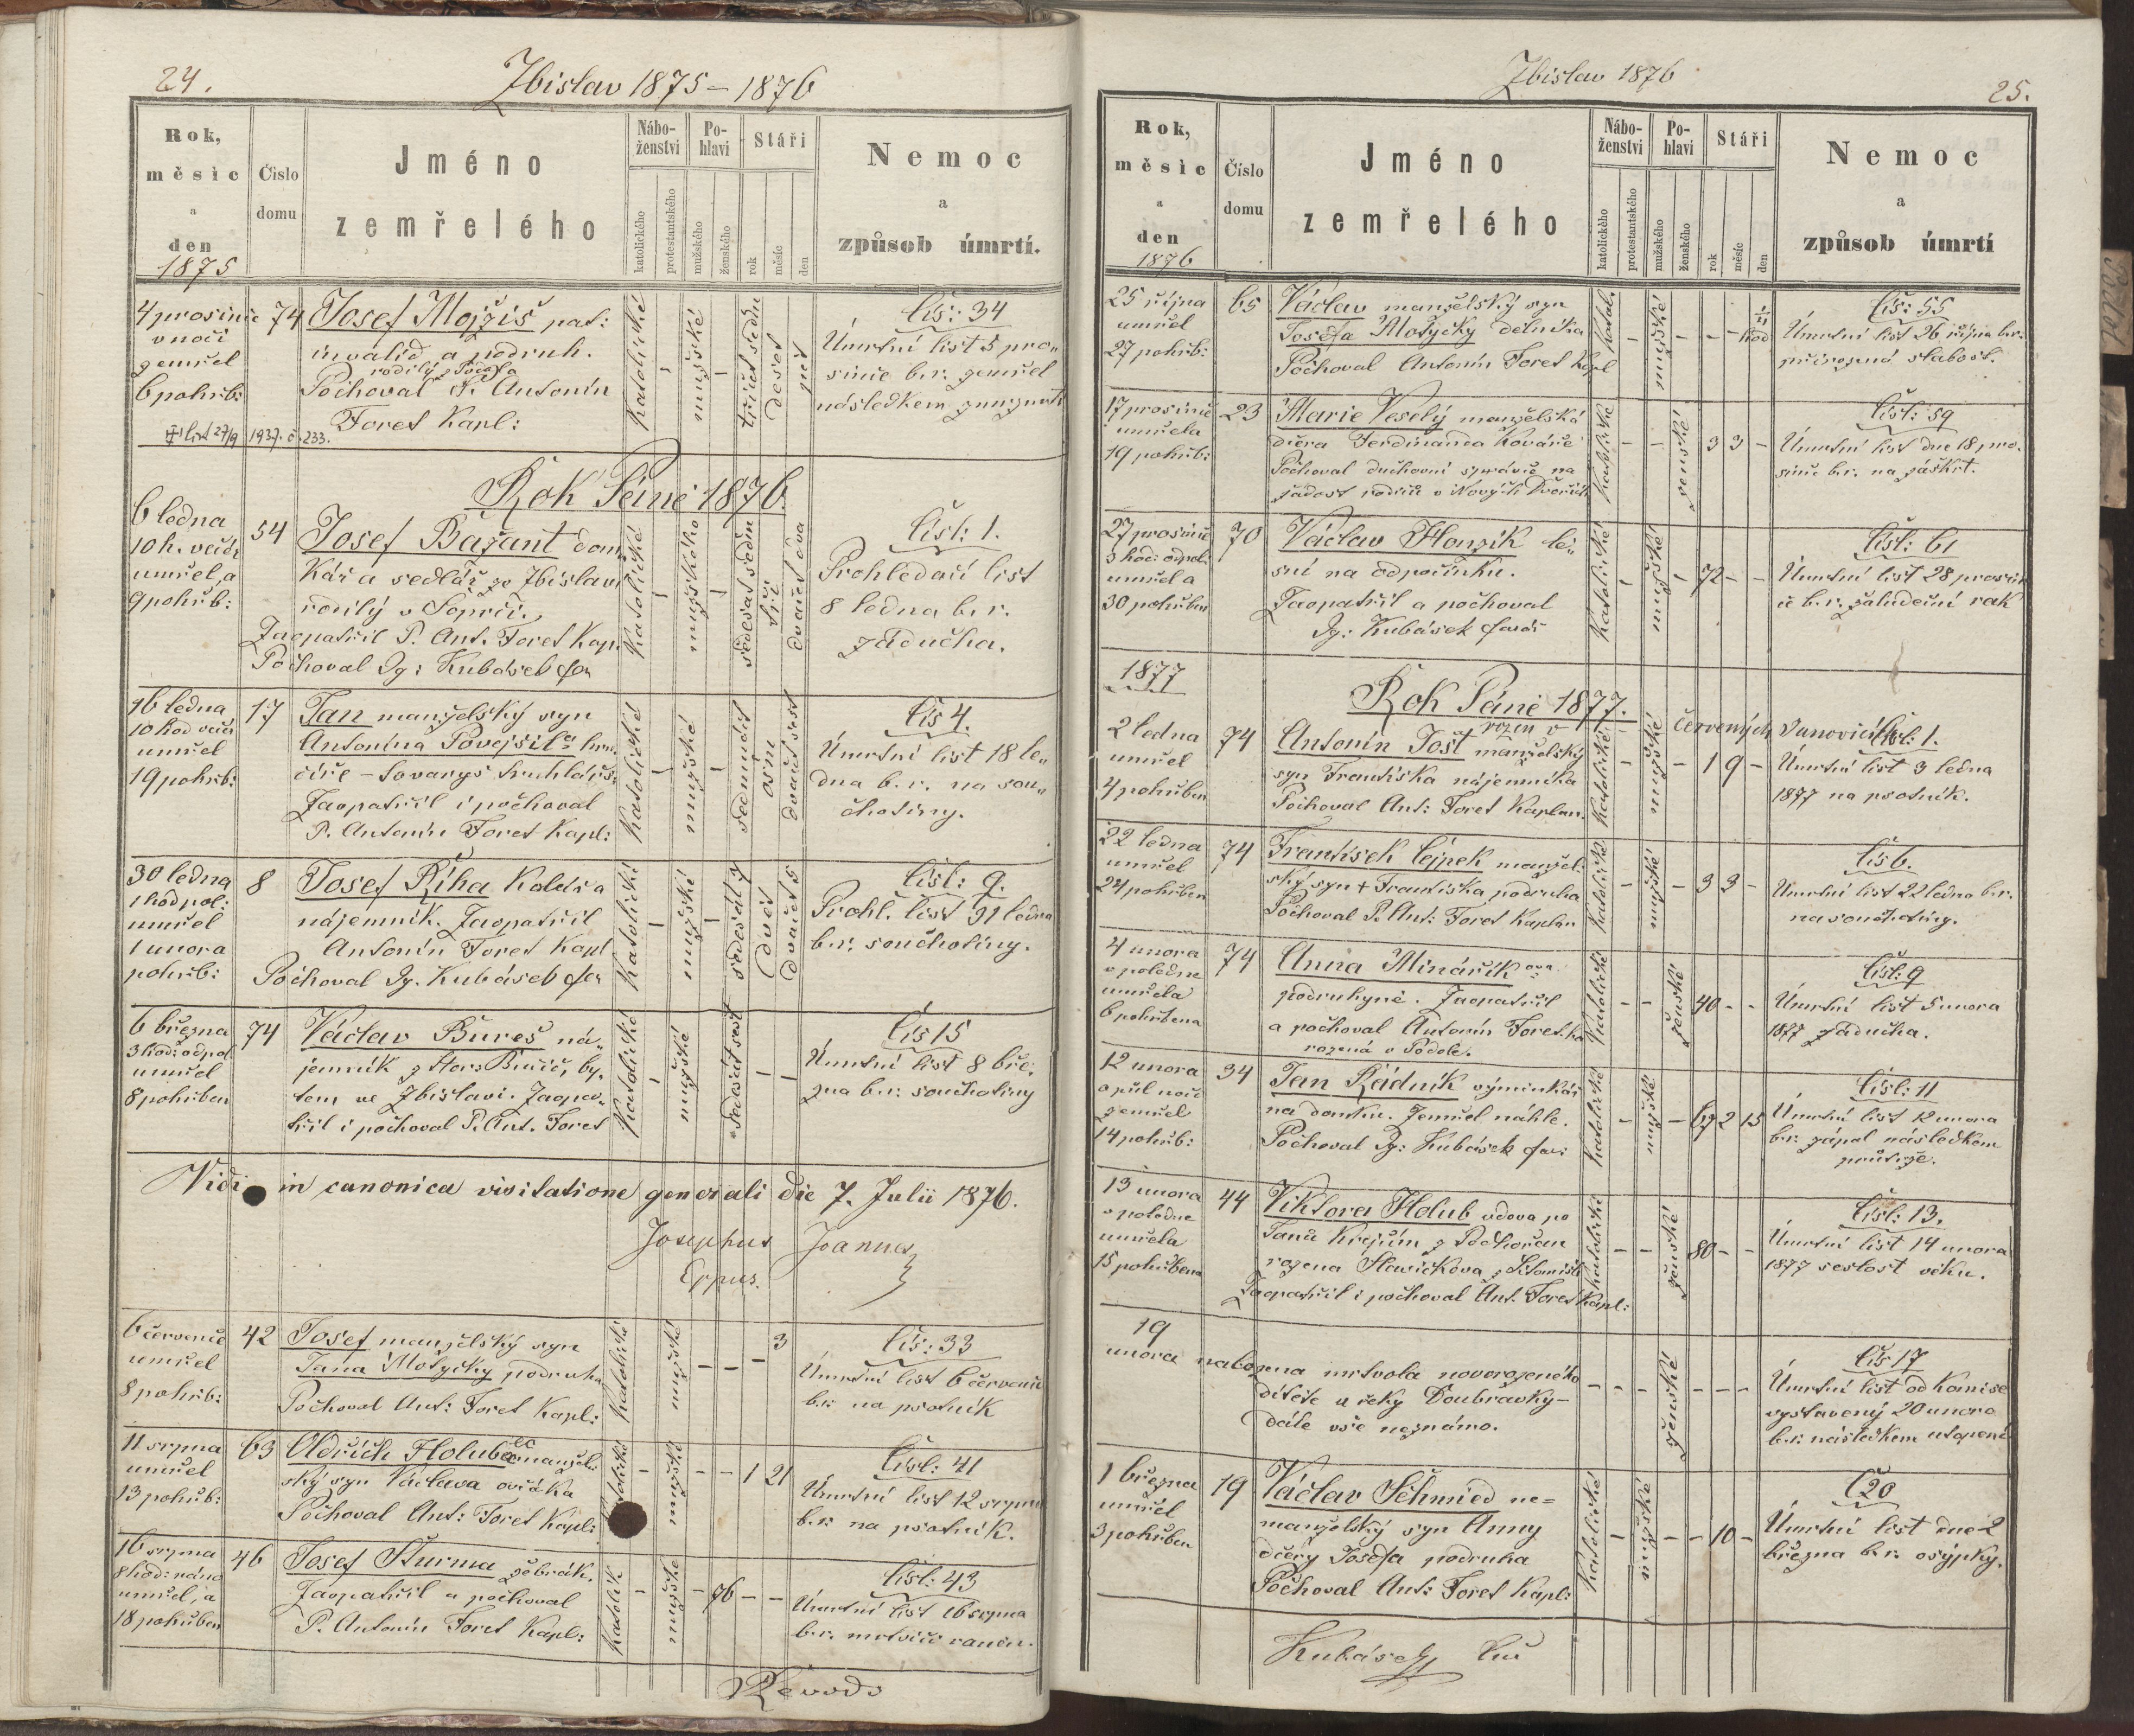 24.
Zbislav 1875 – 1876
Rok,
měsíc
a
den
1875
Číslo
domu
Jméno
zemřelého
Nábo-
ženstvi
katolického
protestantského
Po-
hlavi
mužského
ženského
Stáři
rok
měsíc
den
Nemoc
a
způsob úmrtí.
4 prosince
v noci
zemřel
6 pohřb:
74
Josef Mojžíš pat:
invalid a podruh.
Pochoval P. Antonín
Foret Kapl:
katolické
mužské
deset
pět
Čís: 34
Úmrtní list 5 pro„
since b.r. zemřel
následkem
1937. č. 233.
Rok Páně 1876.
6 ledna
10 h. več:
umřel, a
9 pohřb:
54
Josef Bažant dom„
kář a sedlář ze Zbislavi
rodilý v
Zaopatřil P. Ant. Foret Kap.
Pochoval Ig: Kubásek far
katolické
mužského
tři
dvacet dva
Čísl: 1.
Prohledací list
8 ledna b.r.
záducha.
16 ledna
10 hod več
umřel
19 pohřb:
17
Jan manželský syn
Antonína
Zaopatřil i pochoval
P. Antonín Foret Kapl:
katolické
mužské
sedmnáct
osm
dvacet šest
Čís 4.
Úmrtní list 18 le„
dna b.r. na sou„
chotiny.
30 ledna
1 hod pol:
umřel
1 unora
pohřb:
8
Josef Říha Kolář a
nájemník. Zaopatřil
Antonín Foret Kapl
Pochoval Ig. Kubásek far
katolické
mužské
Čísl: 9.
Prohl. list 31 ledna
b.r. souchotiny.
6 března
3 hod: odpol.
umřel
8 pohřben
74
Václav Bureš ná„
jemník z Hor. Bučic, by„
tem ve Zbislavi. Zaopa„
třil i pochoval P. Ant. Foret
katolické
mužské
Čís 15
Úmrtní list 8 bře„
zna b.r. souchotiny
Vidi in canonica visitatione generali die 7. Julii 1876.
Josephus Joannes
Eppus.
6 července
umřel
8 pohřb:
42
Josef manželský syn
Jana Motyčky podruha
Pochoval Ant: Foret Kapl:
katolické
mužské
– – – 3
Čís: 33
Úmrtní list 6 července
b.r. na psotník
11 srpna
umřel
13 pohřb:
63
Oldřich Holub manžel:
ský syn Václava ovčáka
Pochoval Ant: Foret Kapl:
mužské
– – 1 21
Čísl: 41
Úmrtní list 12 srpna
b.r. na psotník.
16 srpna
umřel, a
18 pohřben
46
Josef Šturma žebrák.
Zaopatřil a pochoval
P. Antonín Foret Kapl:
katolick
mužské
– 76 – –
Čísl: 43
Úmrtní list 16 srpna
b.r. mrtvicí raněn.
25.
Zbislav 1876
Rok,
měsíc
a
den
1876
Číslo
domu
Jméno
zemřelého
Nábo-
ženstvi
katolického
protestantského
Po-
hlavi
mužského
ženského
Stáři
rok
měsíc
den
Nemoc
a
způsob úmrtí
25 října
umřel
27 pohřb:
65
Václav manželský syn
Josefa Motyčky dělníka
Pochoval Antonín Foret Kapl
katol.
mužské
Čís: 55
Úmrtní list 26 října b.r.
přirozená slabost.
17 prosince
umřela
19 pohřb:
23
Marie Veselý manželská
dcera Ferdinanda Kováře
Pochoval duchovní správce na
žádost rodičů v Nových Dvořích
katolické
ženské
3 3 –
Čísl: 59
Úmrtní list dne 18 pro„
since b.r. na záškrt.
27 prosince
3 hod: odpol:
umřel a
30 pohřben
70
Václav Honzík le„
sní na odpočinku.
Zaopatřil a pochoval
Ig: Kubásek farář
katolické
mužské
72 – –
Čísl: 61
Úmrtní list 28 prosin
ce b.r. žaludeční rak
1877
Rok Páně 1877.
2 ledna
umřel
4 pohřben
74
rozen v Červených Janovicích
Antonín Jošt manželský
syn Františka nájemníka
Pochoval Ant: Foret Kaplan.
katolické
mužské
– 1 9 –
Čísl: 1.
Úmrtní list 3 ledna
1877 na psotník.
22 ledna
umřel
24 pohřben
74
František Čejpek manžel:
ský syn † Františka podruha
Pochoval P. Ant: Foret Kaplan
katolické
mužské
– 3 3 –
Čís 6.
Úmrtní list 22 ledna b.r.
na souchotiny.
4 unora
v poledne
umřela
6 pohřbena
74
Anna Minářikova
podruhyně. Zaopatřil
a pochoval Antonín Foret. ka
rozená v Podole.
katolické
ženské
40 – –
Čísl: 9
Úmrtní list 5 unora
1877 záducha.
12 unora
o půl noci
zemřel
14 pohřb:
34
Jan Rádník výminkář
na domku. Zemřel náhle.
Pochoval Ig: Kubásek far:
katolické
mužské
67 2 15
Čísl: 11
Úmrtní list 12 unora
b.r. zápal následkem
průtrže.
13 unora
v poledne
umřela
15 pohřbena
44
Viktora Holub vdova po
Janu Krejčím z Podhořan
rozena Slavičkova z
Zaopatřil i pochoval Ant. Foret Kapl:
katolické
ženské
80 – –
Čísl: 13.
Úmrtní list 14 unora
1877 sešlost věku.
19
unora nalezena mrtvola novorozeného
dítěte u řeky Doubravky –
dále vše neznámo.
ženské
Čís 17
Úmrtní list od komise
vystavený 20 unora
b.r. následkem utopení
1 března
umřel
3 pohřben
19
Václav Schmied ne=
manželský syn Anny
dcery Josefa podruha
Pochoval Ant: Foret Kapl:
katolické
mužské
– – 10 –
Č 20
Úmrtní list dne 2
března b.r. osypky.
Kubásek